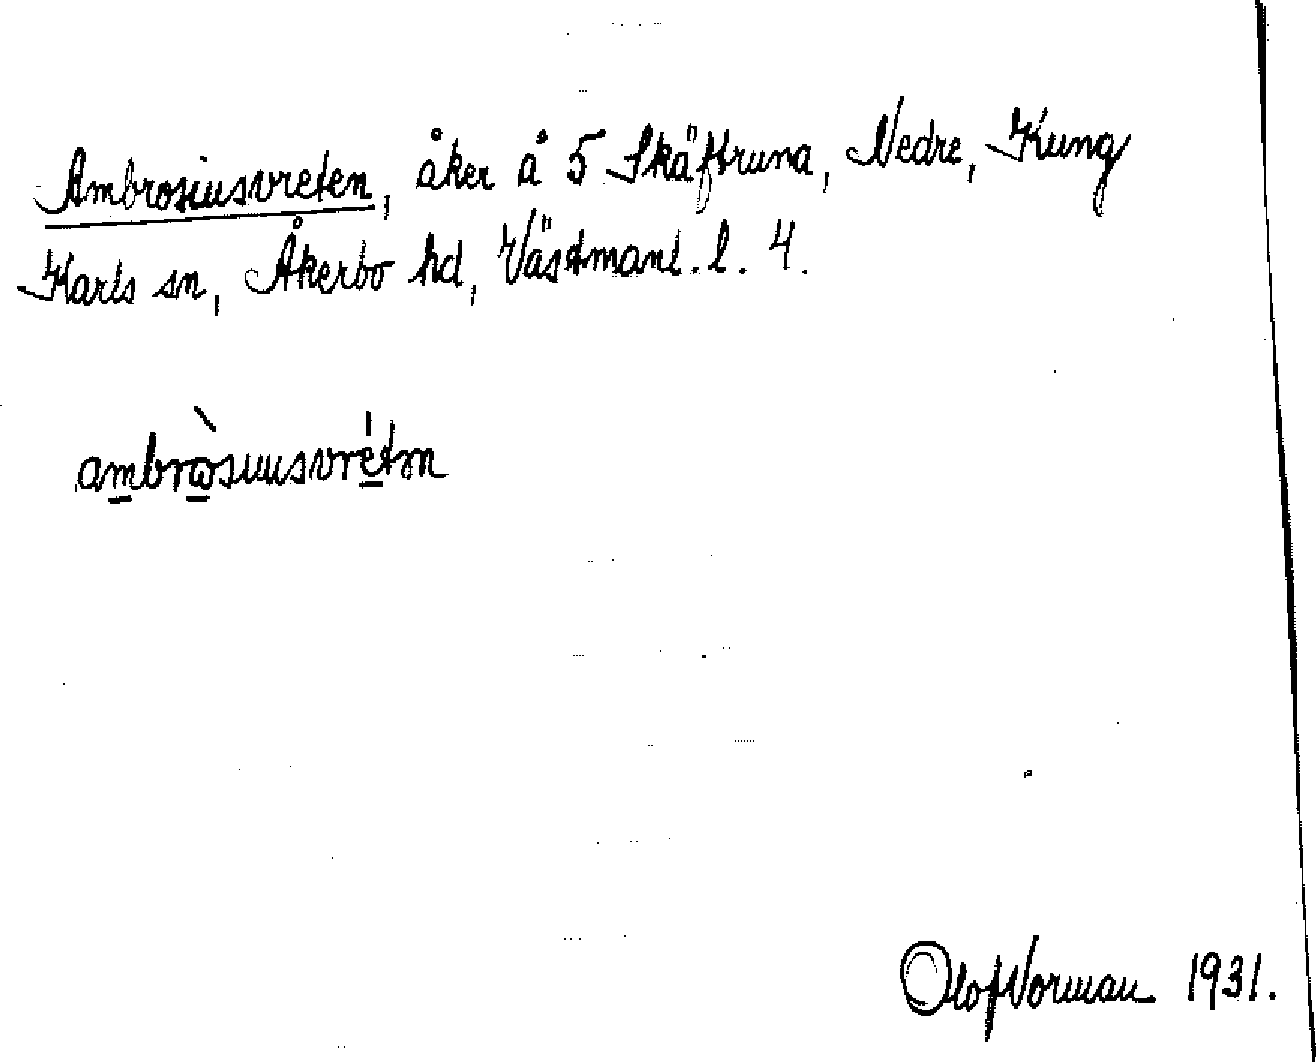 Ambrosiusvreten, åker å 5 Skäftruna, Nedre, Kung
Karls sn, Åkerbo hd, Västmanl. l. 4.
ambròsiusvrétn
Olof Norman 1931.